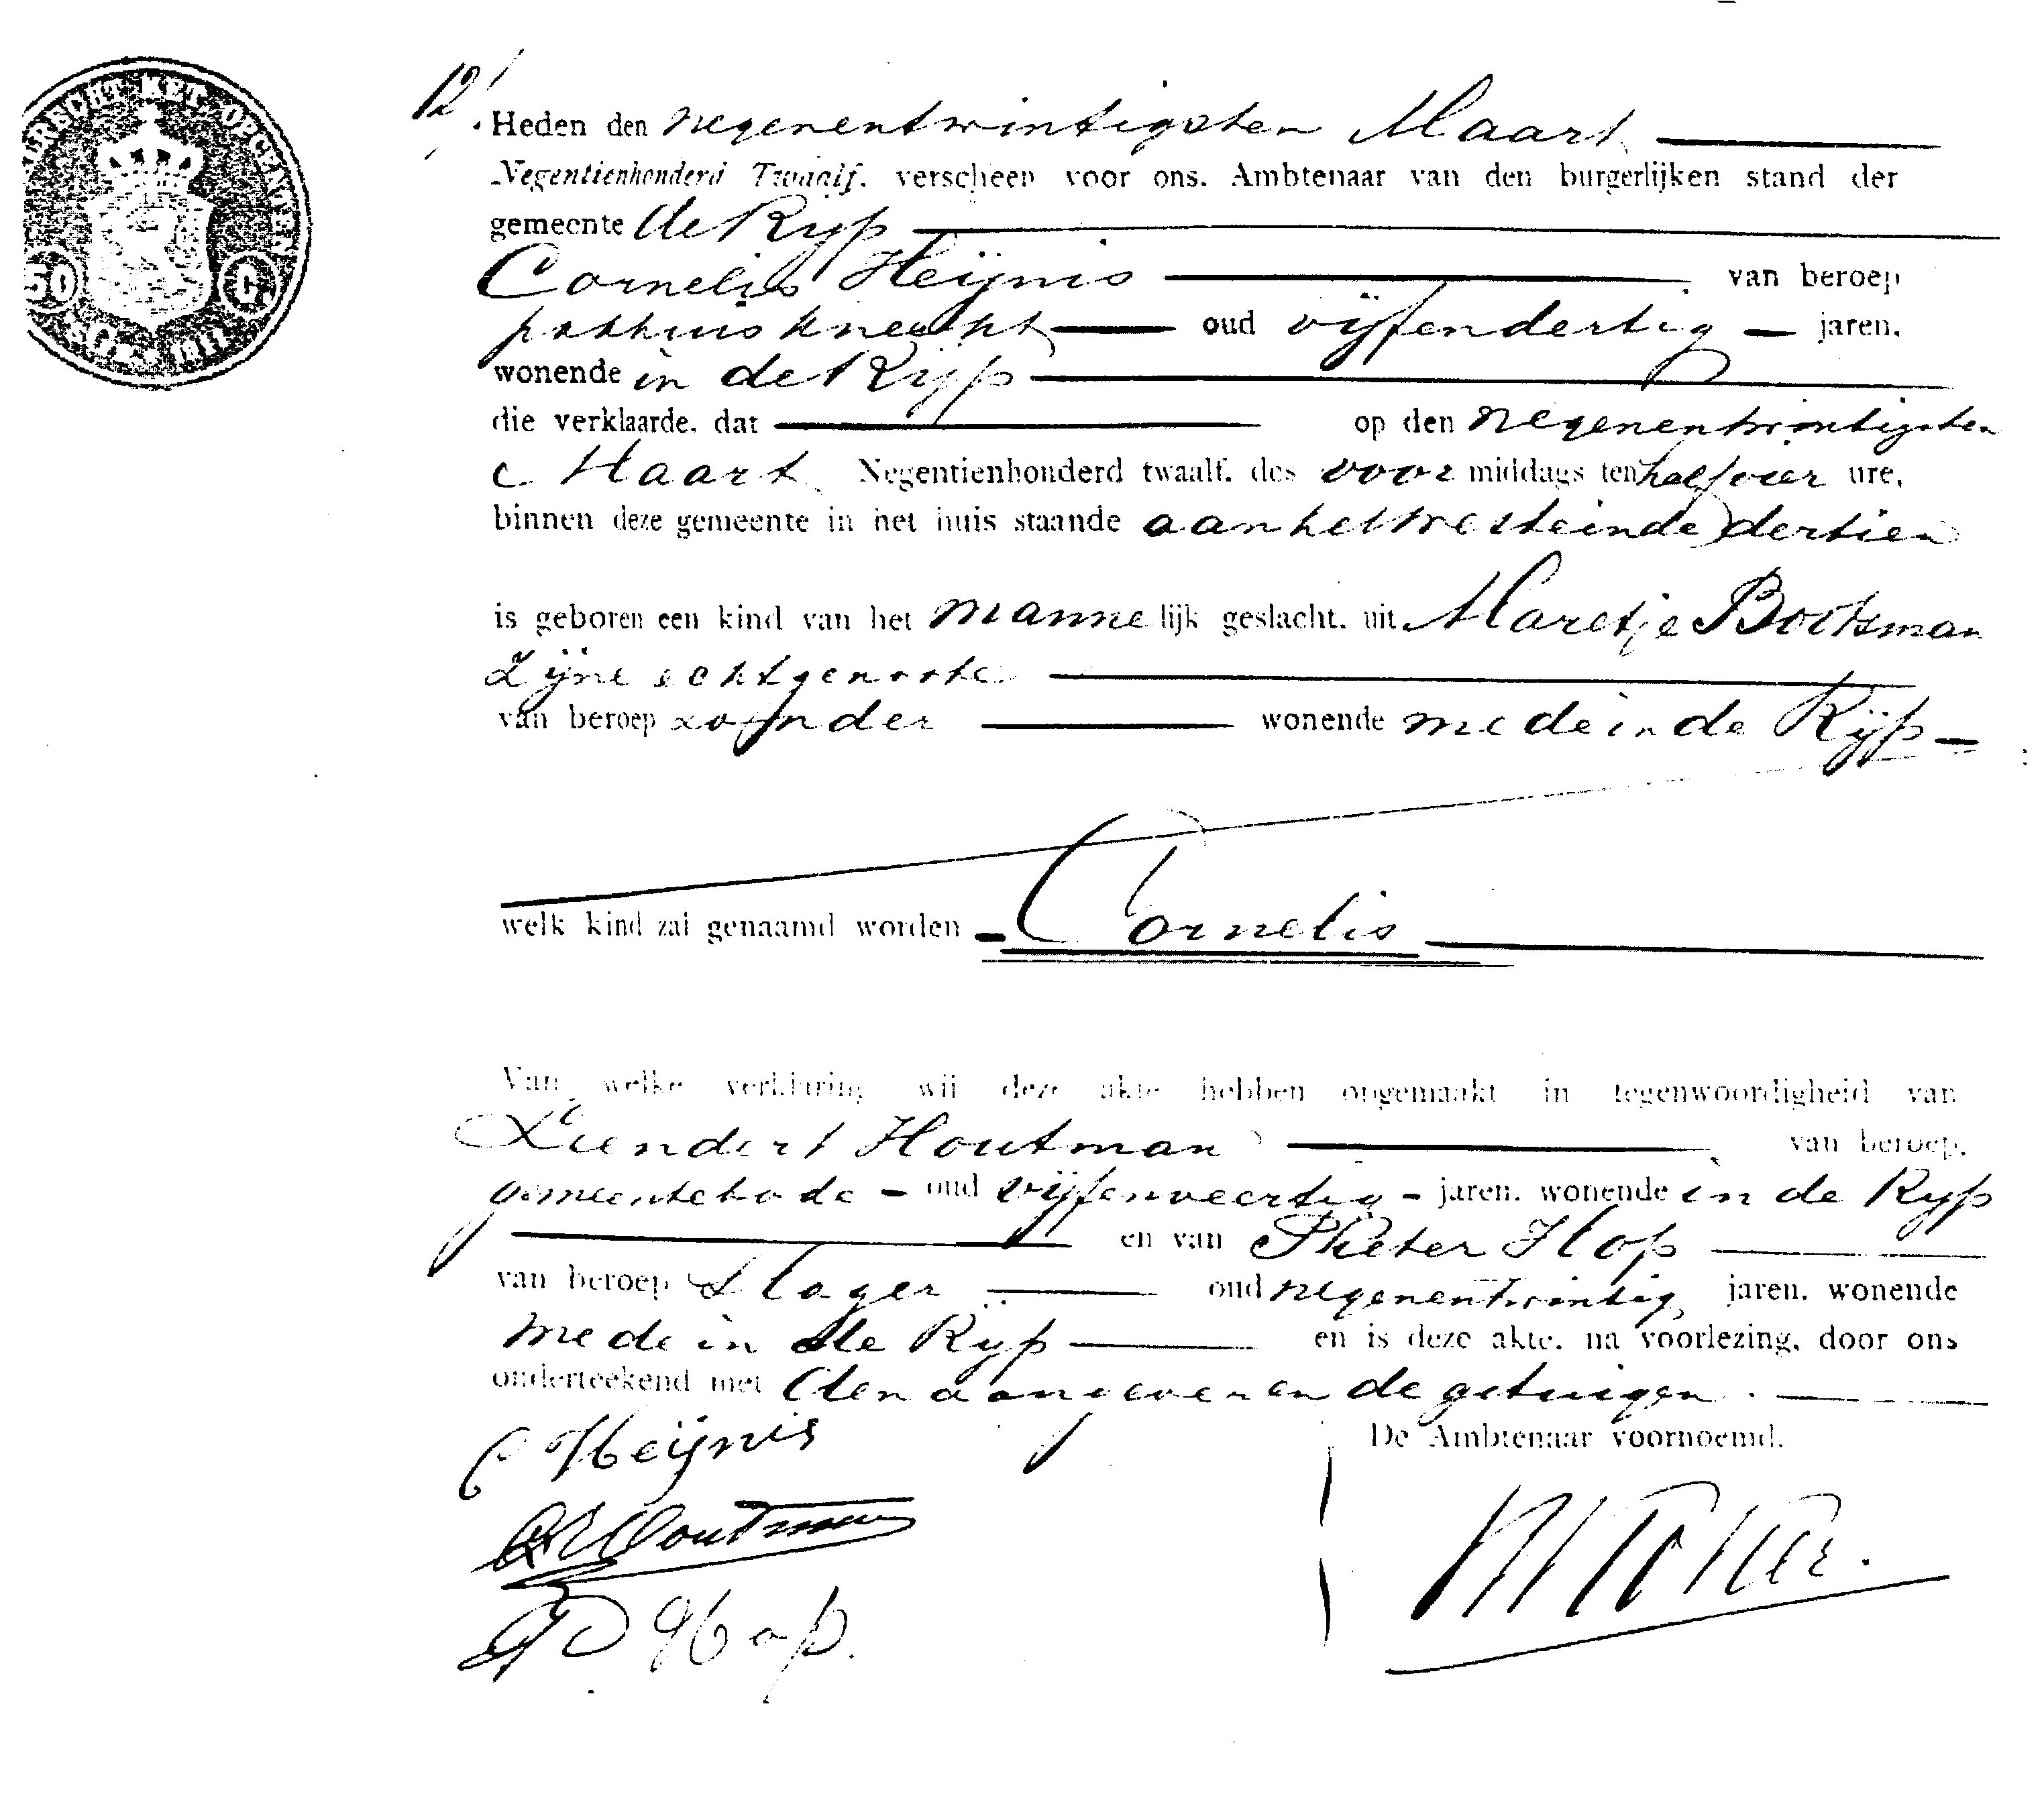 12
Heden den negenentwintigsten Maart
Negentienhonderd Twaalf, verscheen voor ons, Ambtenaar van den burgerlijken stand der
gemeente de Rijp
Cornelis Heijnis van beroep
pakhuisknecht oud vijfendertig jaren,
wonende in de Rijp
die verklaarde, dat op den negenentwintigsten
Maart Negentienhonderd twaalf, des voor middags ten half vier ure,
binnen deze gemeente in het huis staande aan het Westeinde dertien
is geboren een kind van het manne lijk geslacht, uit Maretje Bootsman
Zijne echtgenoote
van beroep zonder wonende mede in de Rijp
welk kind zal genaamd worden Cornelis
Van welke verklaring wij deze akte hebben opgemaakt in tegenwoordigheid van
Leendert Houtman van beroep,
gemeentebode oud vijfenveertig jaren, wonende in de Rijp
en van Pieter Hop
van beroep Slager oud negenentwintig jaren, wonende
mede in de Rijp en is deze akte, na voorlezing, door ons
onderteekend met den aangever en de getuigen.
C Heijnis
De Ambtenaar voornoemd,
L Houtman
P Hop.
50 C